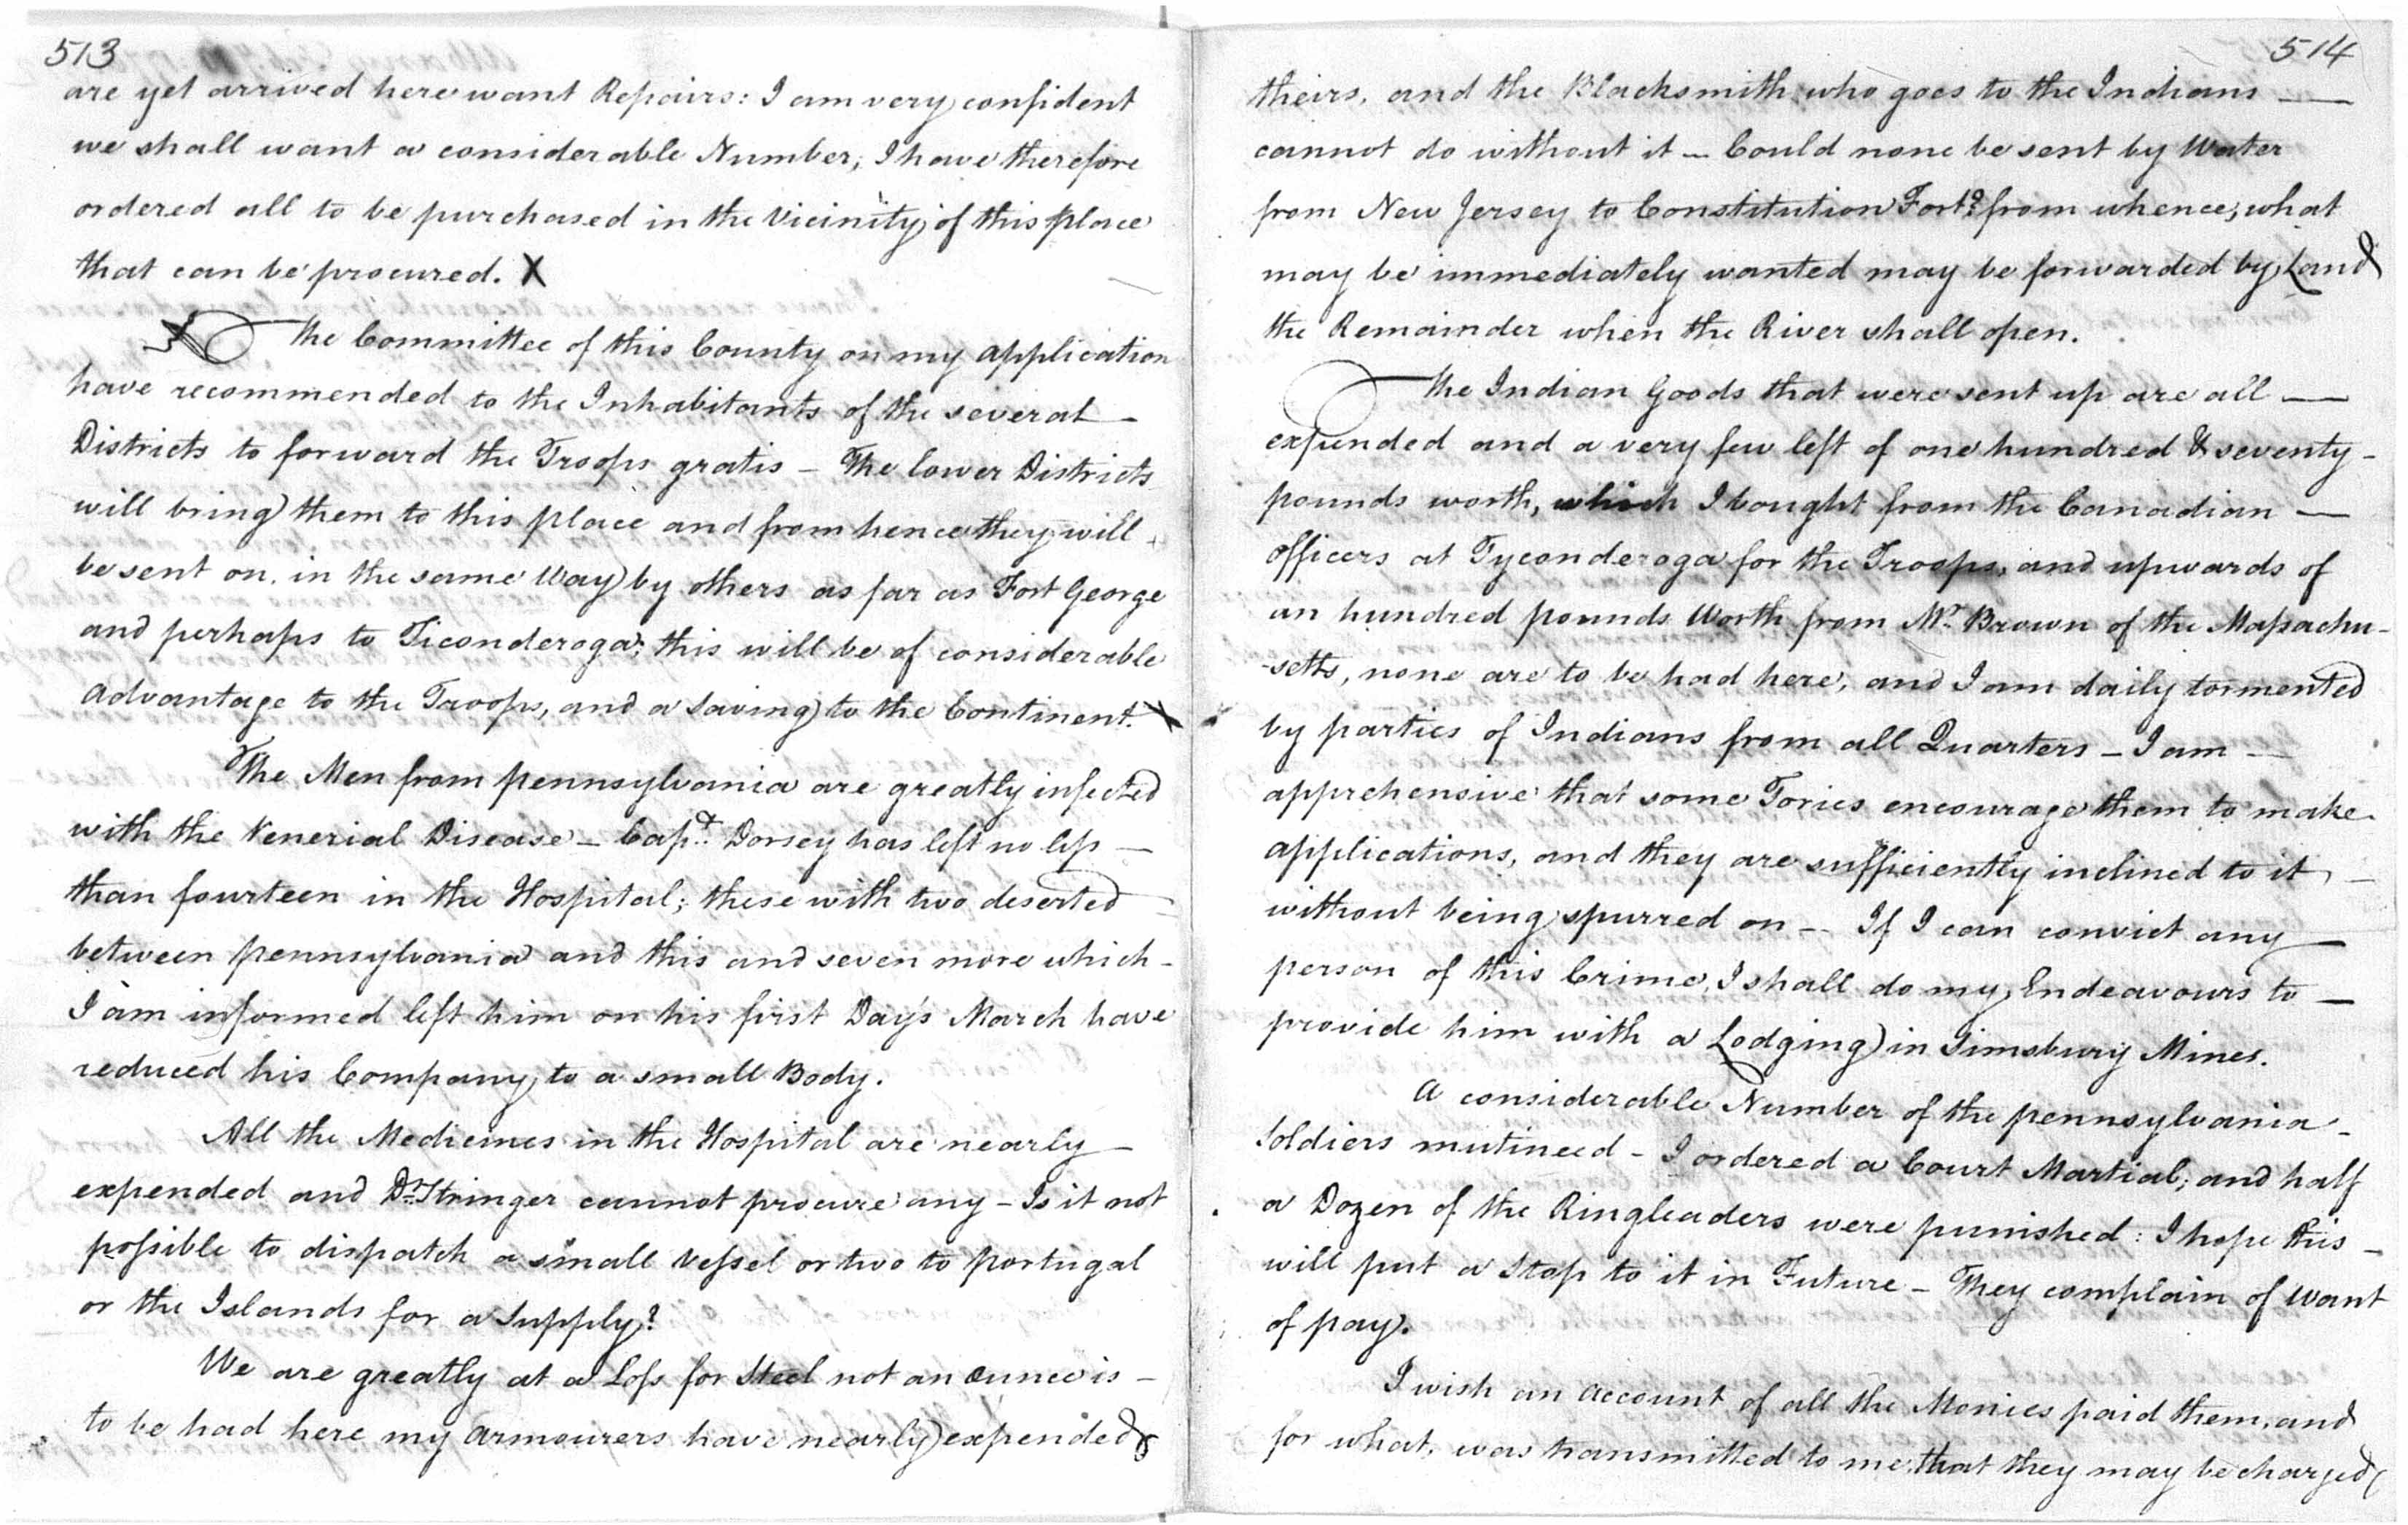 513
are yet arrived here want Repairs: I am very confident
we shall want a considerable Number, I have therefore
ordered all to be purchased in the Vicinity of this place
that can be procured. X
The Committee of this County on my application
have recommended to the Inhabitants of the several —
Districts to forward the Troops gratis – The lower Districts
will bring them to this place and from hence they will
be sent on in the same Way by others as far as Fort George
and perhaps to Ticonderoga; this will be of considerable
advantage to the Troops, and a Saving to the Continent. X
The Men from pennsylvania are greatly infected
with the Venerial Disease – Capt. Dorsey has left no less —
than fourteen in the Hospital; these with two deserted
between pennsylvania and this and seven more which –
I am informed left him on his first Day's March have
reduced his Company to a small Body.
All the Medicines in the Hospital are nearly —
expended and Dr. Stringer cannot procure any – Is it not
possible to dispatch a small Vessel or two to portugal
or the Islands for a Supply?
We are greatly at a Loss for Steel not an ounce is –
to be had here my armourers have nearly expended
514
theirs, and the Blacksmith who goes to the Indians —
cannot do without it – Could none be sent by Water
from New Jersey to Constitution Fort? from whence, what
may be immediately wanted may be forwarded by Land
the Remainder when the River shall open.
The Indian Goods that were sent up are all —
expended and a very few left of one hundred & seventy –
pounds worth, which I bought from the Canadian —
officers at Tyconderoga for the Troops, and upwards of
an hundred pounds Worth from Mr. Brown of the Massachu-
-setts, none are to be had here, and I am daily tormented
by parties of Indians from all Quarters – I am —
apprehensive that some Tories encourage them to make
applications, and they are sufficiently inclined to it, –
without being spurred on – If I can convict any —
person of this Crime, I shall do my Endeavours to —
provide him with a Lodging in Simsbury Mines.
A considerable Number of the pennsylvania –
Soldiers mutineed – I ordered a Court Martial; and half
a Dozen of the Ringleaders were punished: I hope this –
will put a Stop to it in Future – They complain of Want
of pay.
I wish an account of all the Monies paid them, and
for what, was transmitted to me, that they may be charged